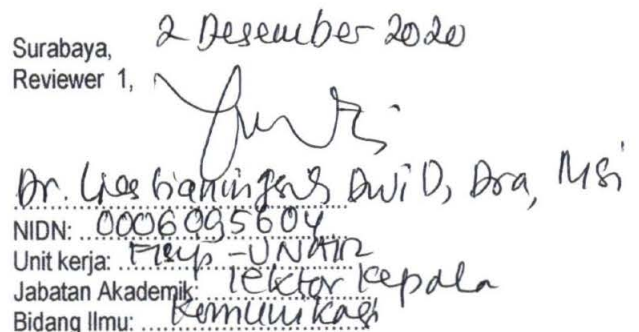 Surabaya, 2 Desember 2020
Reviewer 1,
Dr. Liestianingsih Dwi D, Dra, MSi
NIDN: 0006095604
Unit kerja: FISIP - UNAIR
Jabatan Akademik: lektor kepala
Bidang Ilmu: Komunikasi